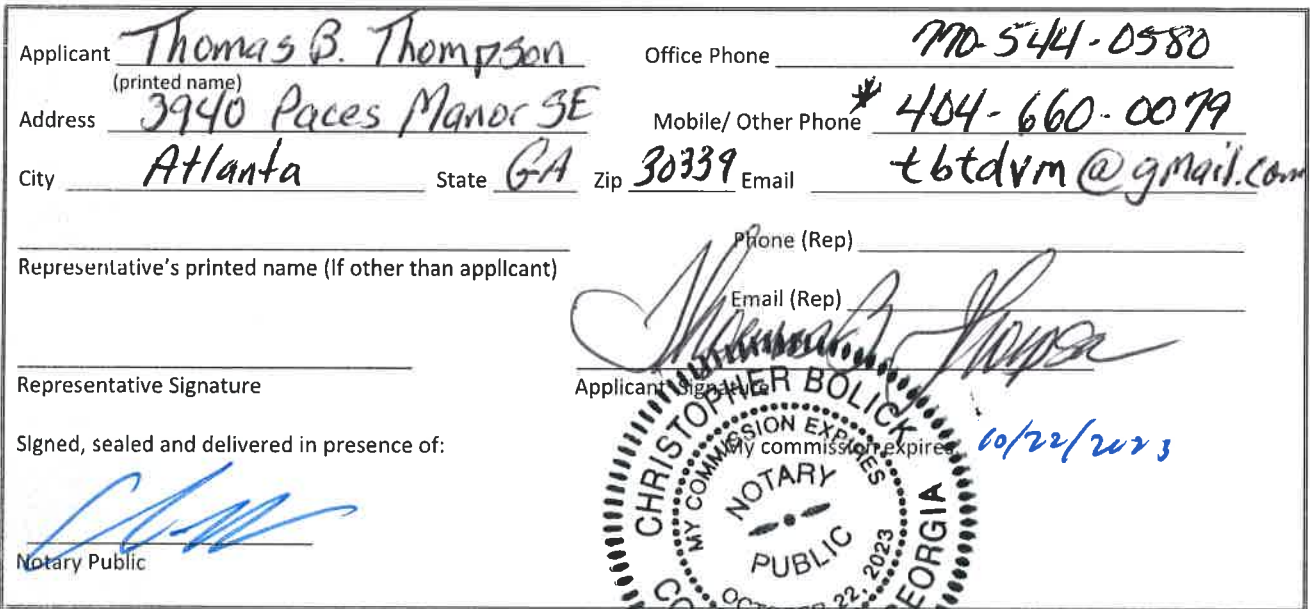 Applicant Thomas B. Thompson Office Phone 770-544-0580
(printed name)
Address 3940 Paces Manor SE Mobile/ Other Phone * 404-660-0079
City Atlanta State GA Zip 30339 Email tbtdvm@gmail.com
Phone (Rep)
Representative's printed name (If other than applicant)
Email (Rep)
Thomas B Thompson
Representative Signature Applicant Signature
Signed, sealed and delivered in presence of: My commission expires 10/22/2023
Notary Public
CHRISTOPHER BOLICK
MY COMMISSION EXPIRES
NOTARY
PUBLIC
OCTOBER 22, 2023
GEORGIA